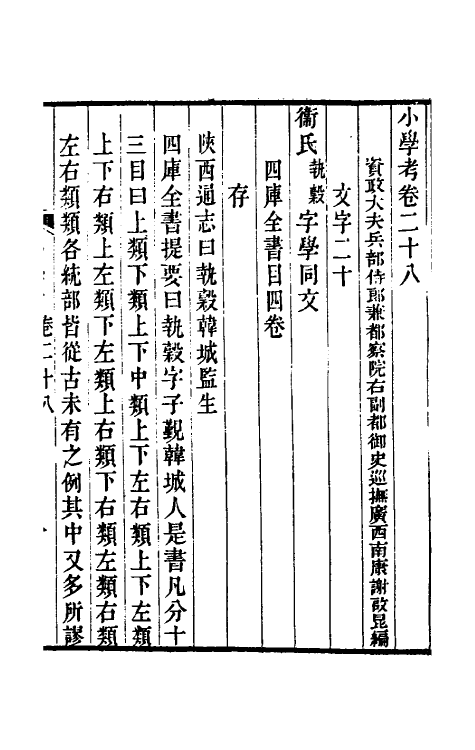 小學考卷二十八
資政大夫兵部侍郎兼都察院右副都御史巡撫廣西南康謝啟昆編
文字二十
衞氏執轂字學同文
四庫全書目四卷
存
陝西通志曰執轂韓城監生
四庫全書提要曰執轂字子覲韓城人是書凡分十
三目曰上類下類上下中類上下左右類上下左類
上下右類上左類下左類上右類下右類左類右類
左右類類各統部皆從古未有之例其中又多所謬
卷二十八